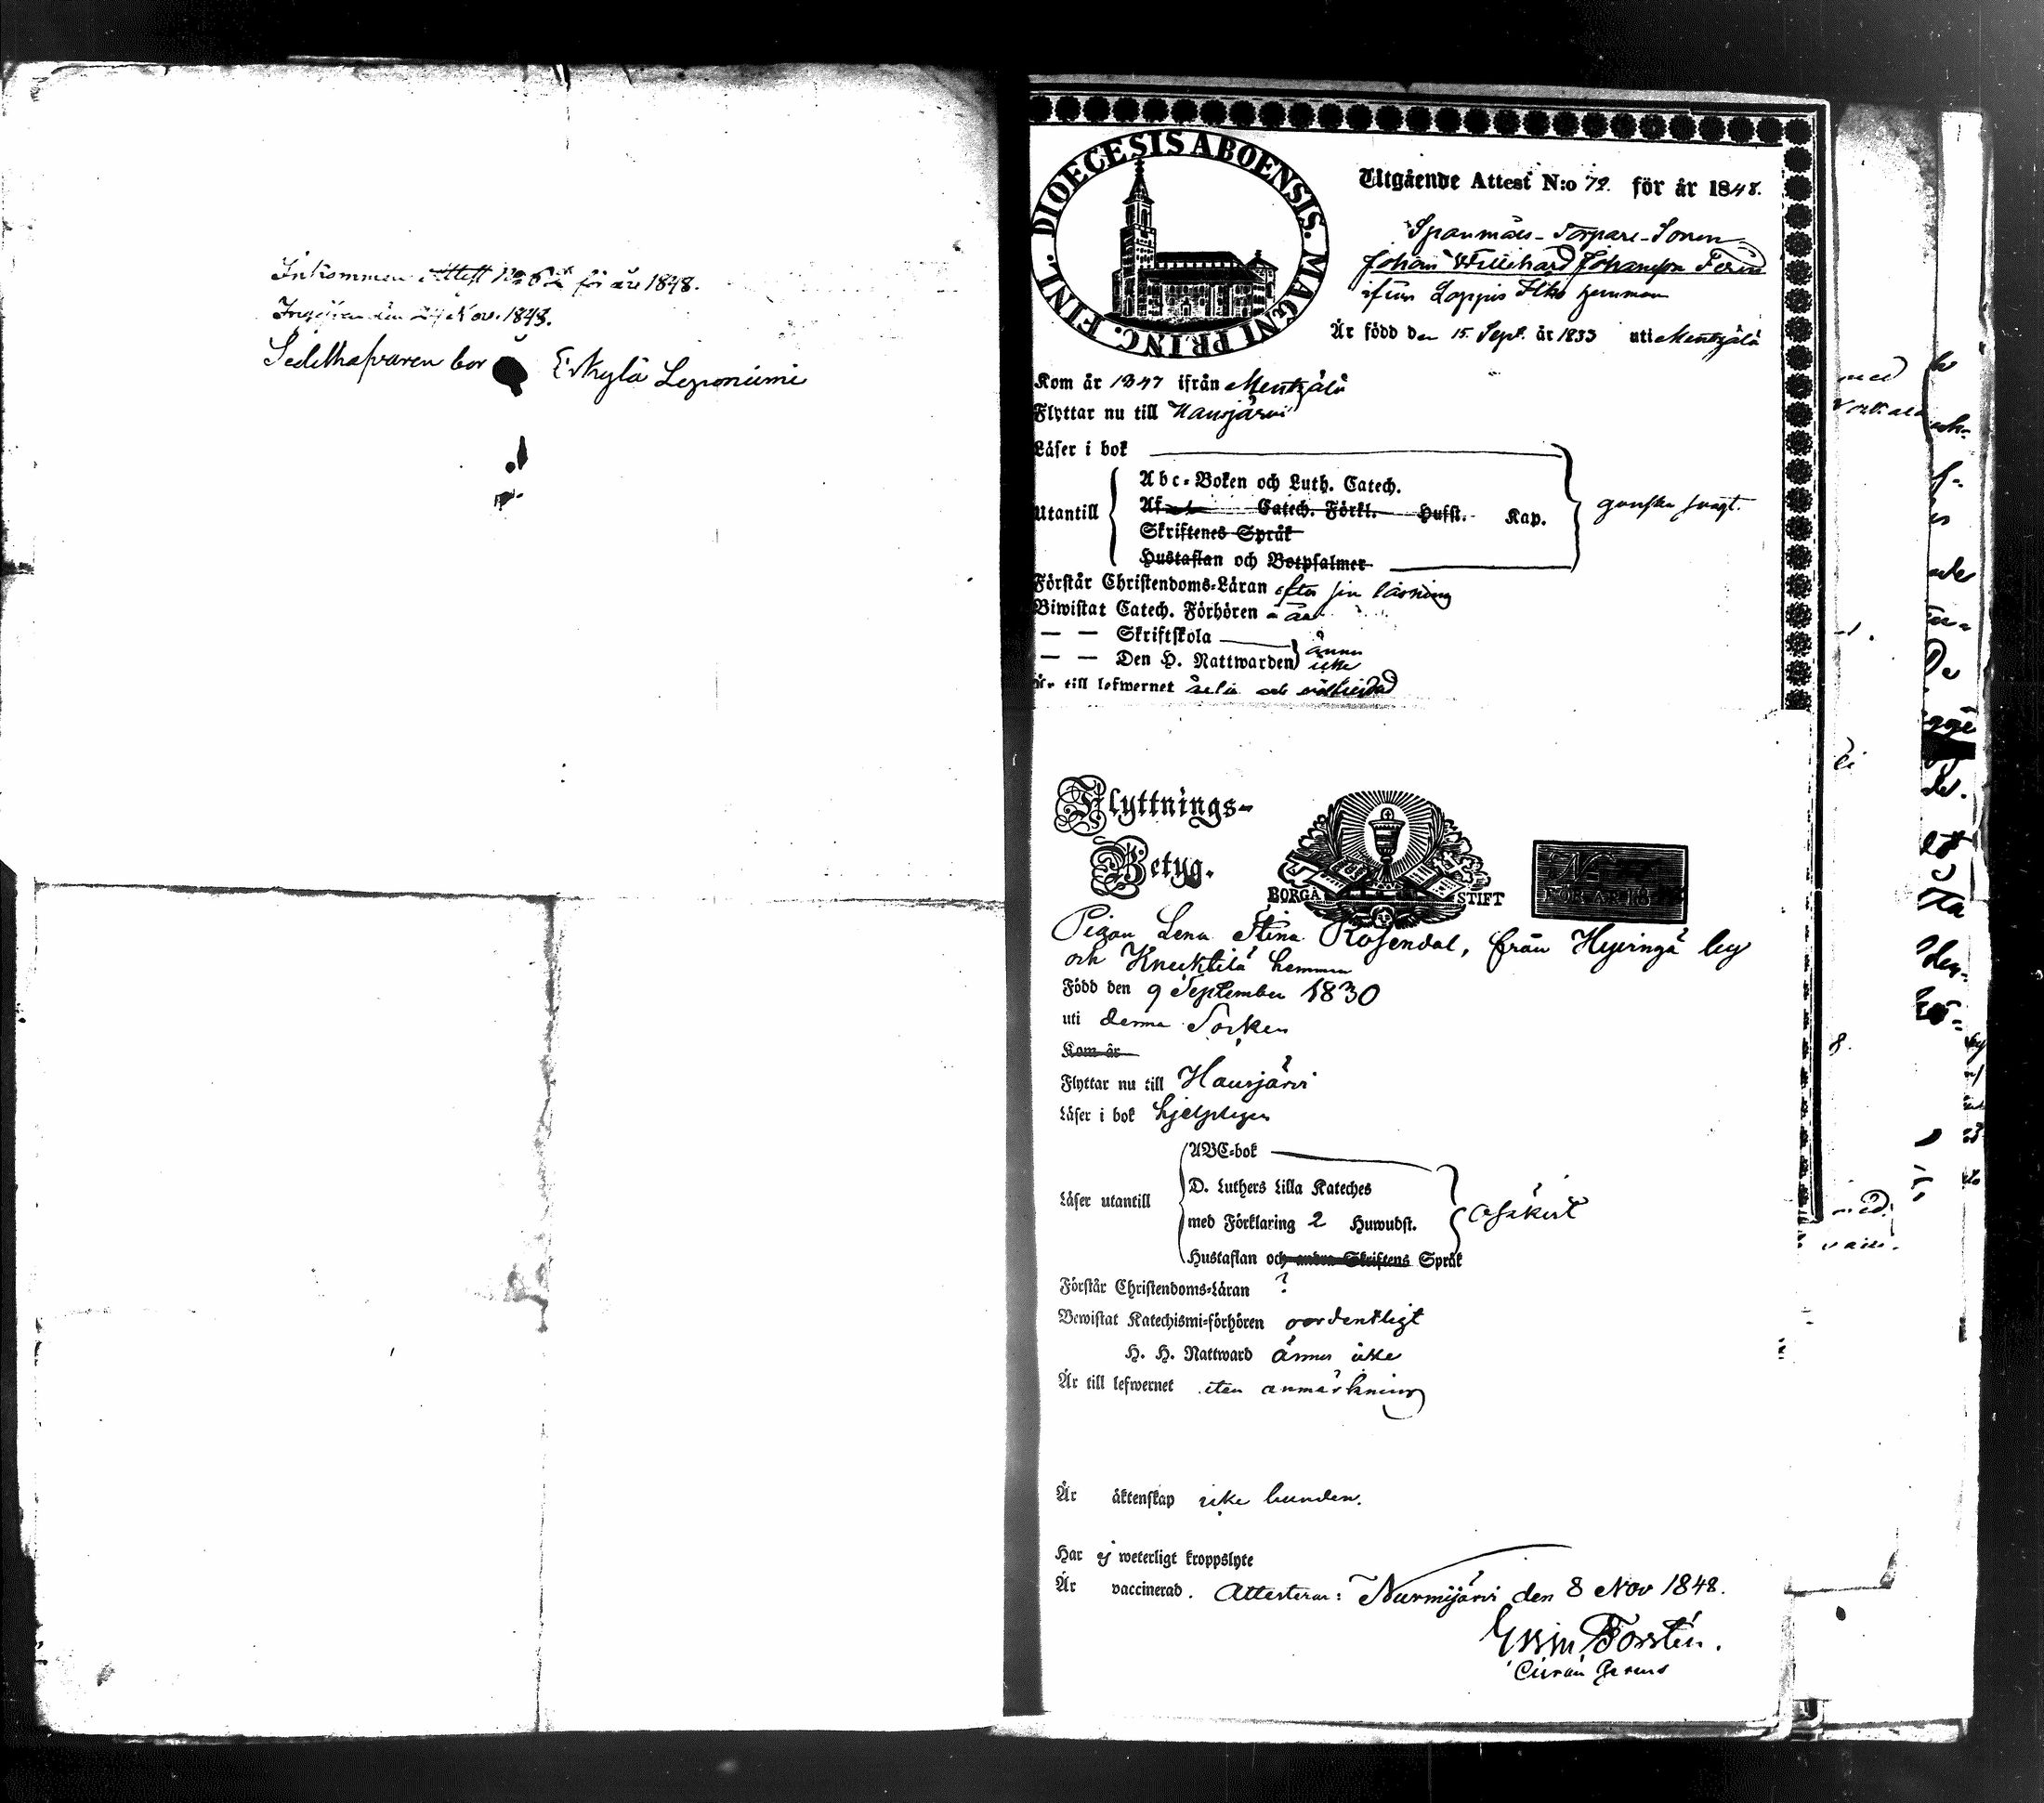 Inkommen Attest No 6 för år 1848.
Ingifven den Nov. 1848.
Sedelhafvaren bor Erkylä Leponiemi
DIOECESIS ABOENSIS. MAGNI PRINC. FINL.
Utgående Attest N:o 72. för år 1848.
Torpare-Sonen
Johan Johansson
ifrån Loppis hemman
Är född den 15 Sept. år 1833 uti Mentzälä
Kom år 1847 ifrån Mentzälä
Flyttar nu till Hausjärvi
Läser i bok
Utantill
Abc-Boken och Luth. Catech.
Af Catech. Förkl. Hufst. Kap.
Skriftenes Språk
Hustaflan och Botpsalmer
ganska svagt.
Förstår Christendoms-Läran efter sin läsning
Biwistat Catech. Förhören
— — Skriftskola
— — Den H. Nattwarden
ännu
icke
Är till lefwernet
Flyttnings-
Betyg.
BORGÅ STIFT
N
FÖR ÅR 18
Pigan Lena Stina Rosendal, från Hyvingä by
och Knecktilä hemman
Född den 9 September 1830
uti denna Socken
Kom år
Flyttar nu till Hausjärvi
Läser i bok hjelpligen
Läser utantill
ABC-bok
D. Luthers Lilla Kateches
med Förklaring 2 Huwudst.
Hustaflan och andra Skriftens Språk
osäkert
Förstår Christendoms-Läran ?
Bewistat Katechismi-förhören oordentligt
H. H. Nattward ännu icke
Är till lefwernet utan anmärkning
Är äktenskap icke bunden.
Har ej weterligt kroppslyte
Är vaccinerad. Attesterar: Nurmijärvi den 8 Nov 1848.
Forstén.